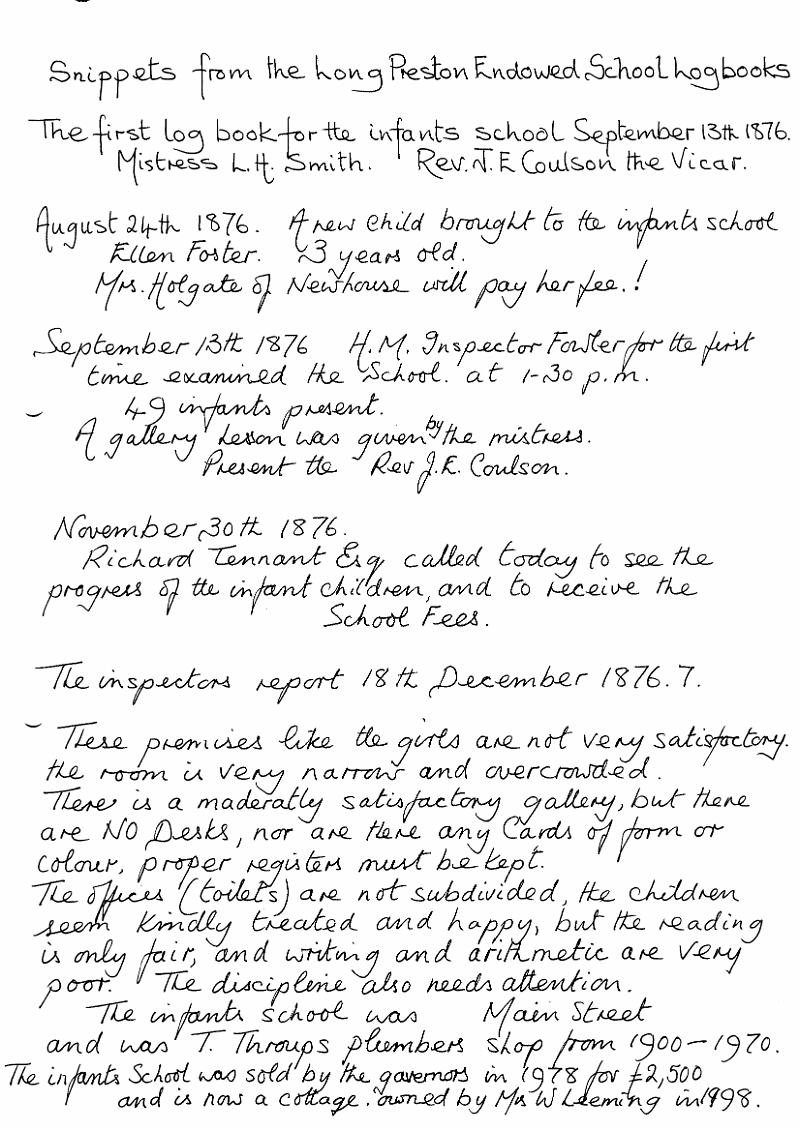 Snippets from the Long Preston Endowed School Logbooks
The first log book for the infants school September 13th 1876.
Mistress L.H. Smith. Rev. J.E Coulson the Vicar.
August 24th 1876. A new child brought to the infants school
Ellen Foster. 3 years old.
Mrs. Holgate of Newhouse will pay her fee.!
September 13th 1876 H.M. Inspector Fowler for the first
time examined the School. at 1-30 p.m.
49 infants present.
A gallery Lesson was given by the mistress.
Present the Rev J.E. Coulson.
November 30th 1876.
Richard Tennant Esq called today to see the
progress of the infant children, and to receive the
School Fees.
The inspectors report 18th December 1876.7.
These premises like the girls are not very satisfactory.
the room is very narrow and overcrowded.
There is a maderatly satisfactory gallery, but there
are NO Desks, nor are there any Cards of form or
colour, proper registers must be kept.
The offices (toilets) are not subdivided, the children
seem kindly treated and happy, but the reading
is only fair, and writing and arithmetic are very
poor. The discipline also needs attention.
The infants school was Main Street
and was T. Throups plumbers shop from 1900-1970.
The infants School was sold by the governors in 1978 for £2,500
and is now a cottage. owned by Mrs W Leeming in 1998.